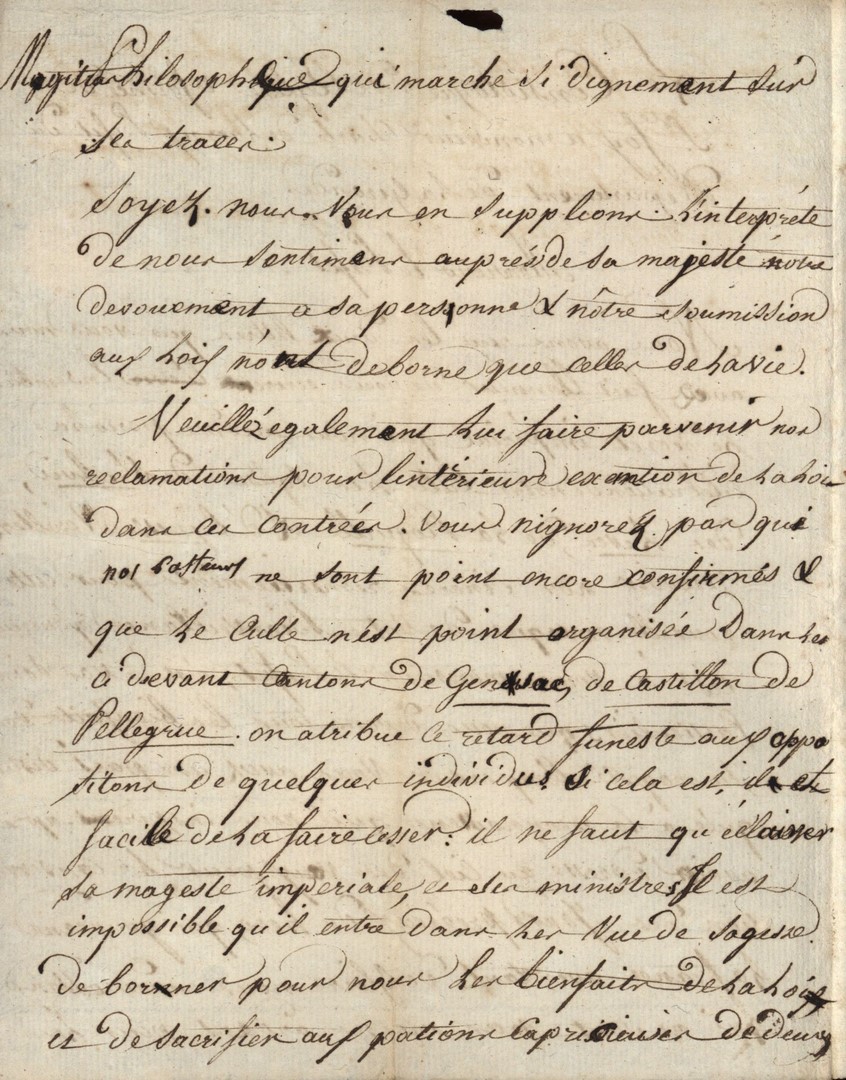 Magistrat Philosophique qui marche si dignement sur
ses traces.
Soyez. nous. Vous en supplions. L'interpréte
de nous sentimens auprés de sa majesté nôtre
devouement a sa personne & nôtre soumission
aux loix n'ont de borne que celles de la vie.
Veuillez également lui faire parvenir nos
reclamations pour l'intérieure exention de la loi
dans ces contrées. Vous n'ignorez pas qui
nos Pasteurs ne sont point encore confirmés &
que le Culte n'est point organisée Dans les
ci devant Cantons de Gensac, de Castillon de
Pellegrue. on atribue ce retard funeste aux oppo
sitons de quelques individus. si cela est, il est
facile de la faire cesser. il ne faut qu'éclairer
sa mageste imperiale, et ses ministres Il est
impossible qu'il entre dans les Vue de sagesse
de borner pour nous les bienfaits de la loix
et de sacrifier aux pations Capricieuses de deux